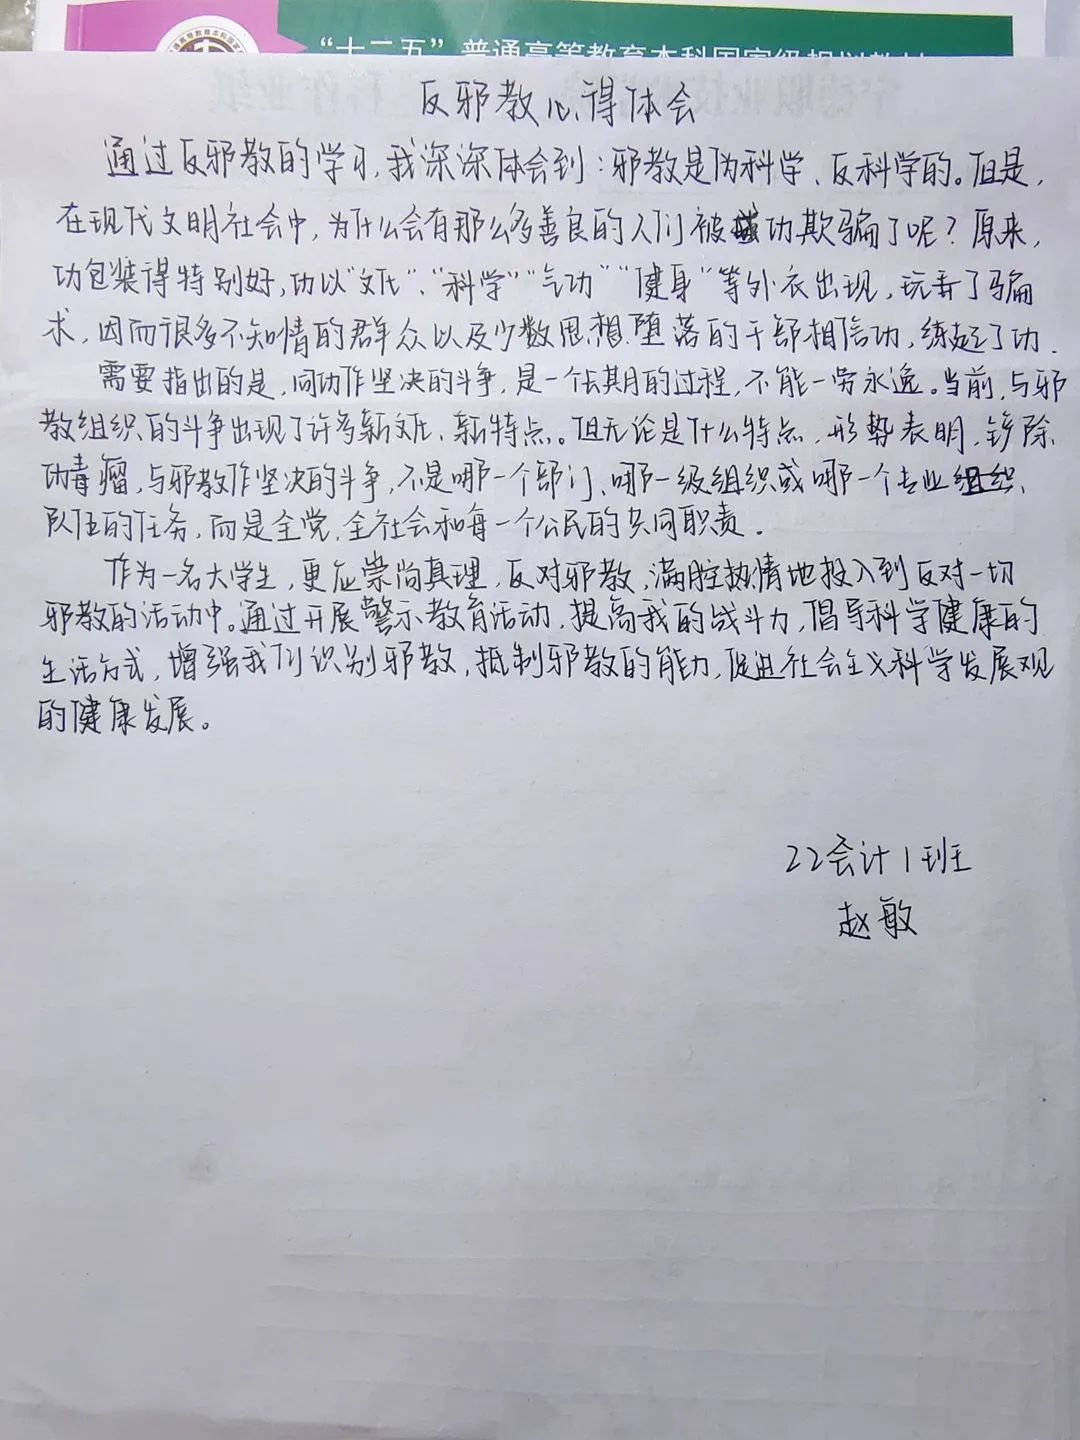 “十二五”普通高等教育本科国家级规划教材
反邪教心得体会
通过反邪教的学习,我深深体会到:邪教是伪科学、反科学的。但是,
在现代文明社会中,为什么会有那么多善良的人们被功欺骗了呢?原来,
功包装得特别好,功以“文化”、“科学”“气功”“健身”等外衣出现,玩弄了骗
术,因而很多不知情的群众以及少数思想堕落的干部相信功,练起了功.
需要指出的是,同功作坚决的斗争,是一个长期的过程,不能一劳永逸。当前,与邪
教组织的斗争出现了许多新变化、新特点。但无论是什么特点,形势表明,铲除
功毒瘤,与邪教作坚决的斗争,不是哪一个部门、哪一级组织或哪一个专业组织、
队伍的任务,而是全党,全社会和每一个公民的共同职责.
作为一名大学生,更应崇尚真理,反对邪教,满腔热情地投入到反对一切
邪教的活动中。通过开展警示教育活动,提高我的战斗力,倡导科学健康的
生活方式,增强我们识别邪教,抵制邪教的能力,促进社会主义科学发展观
的健康发展。
22会计1班
赵敏